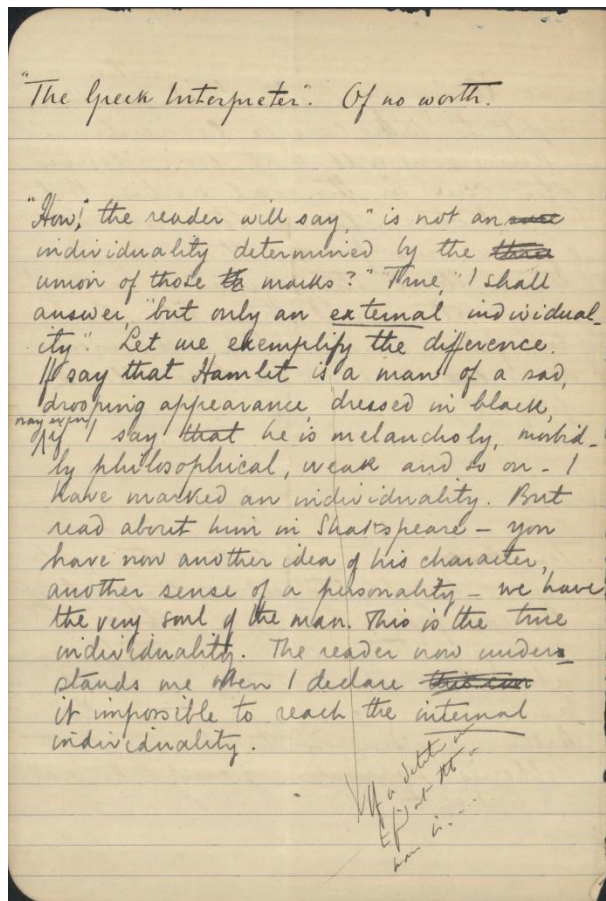 "The Greek Interpreter". Of no worth.
"How", the reader will say, "is not an
individuality determined by the three
union of those th marks?" "True," I shall
answer, "but only an external individual-
ity". Let me exemplify the difference.
If I say that Hamlet is a man of a sad,
drooping appearance, dressed in black,
nay even,
if I say that he is melancholy, morbid-
ly philosophical, weak and so on - I
have marked an individuality. But
read about him in Shakspeare - you
have now another idea of his character,
another sense of a personality - we have
the very soul of the man. This is the true
individuality. The reader now under-
stands me when I declare
it impossible to reach the internal
individuality.
of a